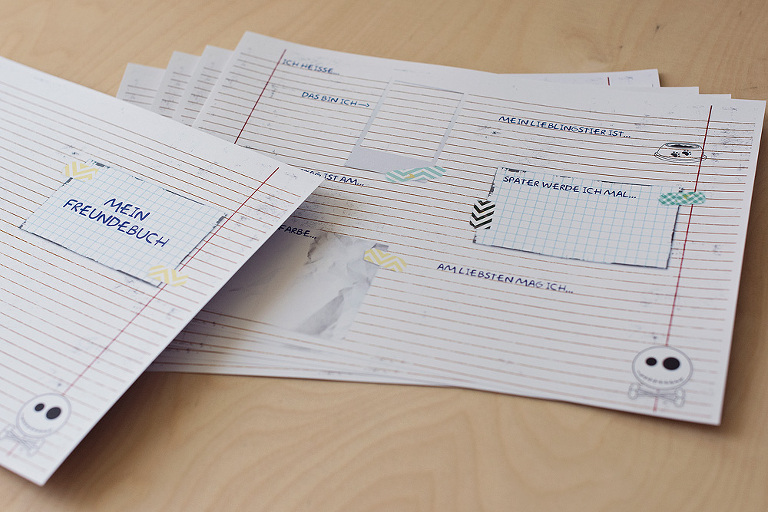 MEIN
FREUNDEBUCH
ICH HEISSE...
DAS BIN ICH →
IST AM...
FARBE...
MEIN LIEBLINGSTIER IST...
SPÄTER WERDE ICH MAL...
AM LIEBSTEN MAG ICH...